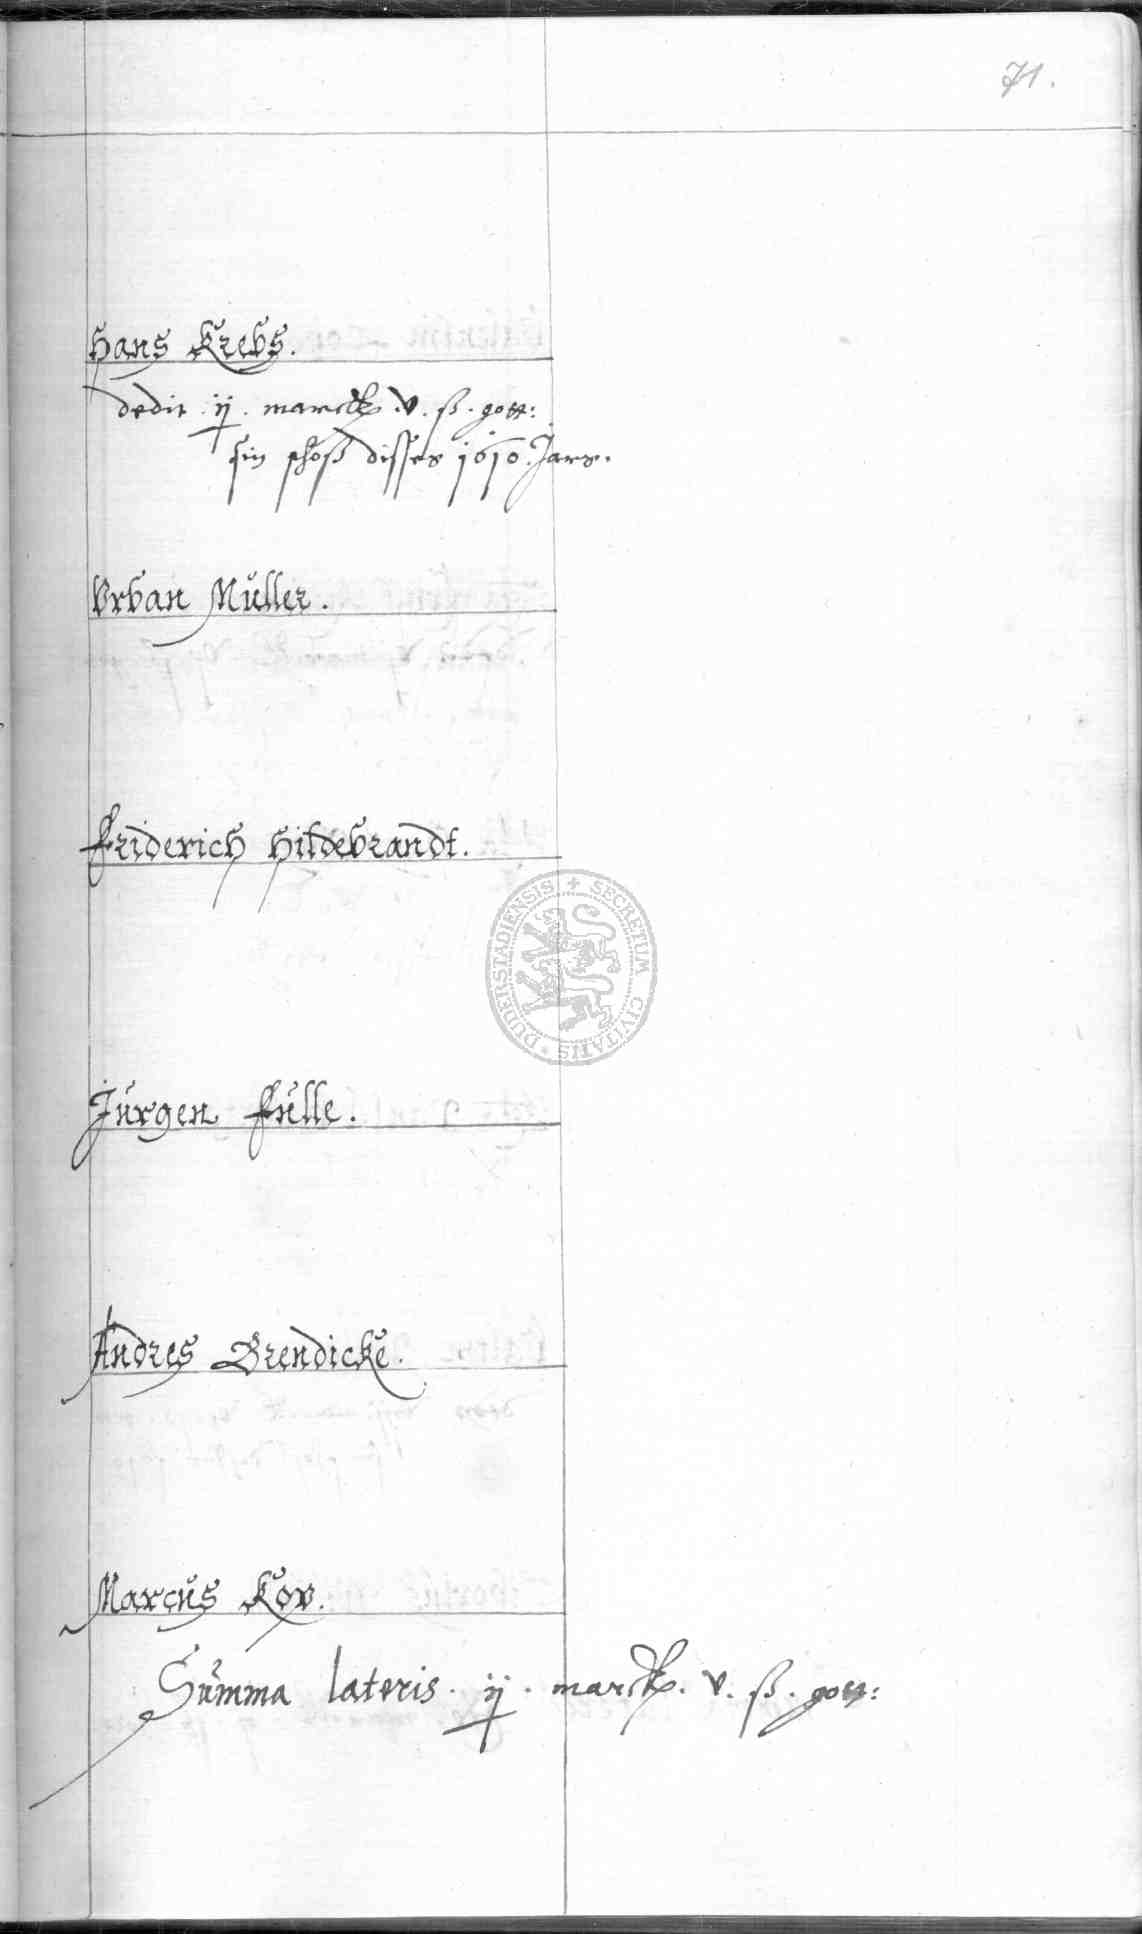 71.
Hans Krebs.
dedit ij. marck. v. ß. gott:
sin schoß disses 1610. Jars.
Vrban Müller.
Friderich Hildebrandt.
DUDERSTADIENSIS + SECRETUM CIVITATIS
Jürgen Fülle.
Andres Brendicke.
Marcus Kov.
Summa lateris. ij. marck. v. ß. gott: